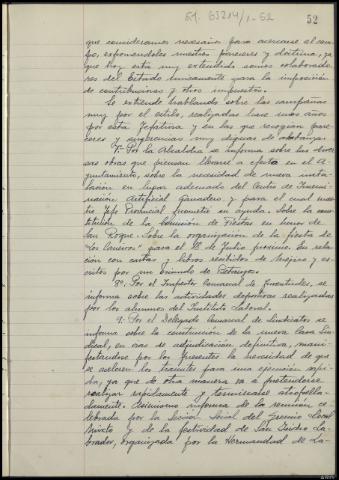 51. 63214/1-52
52
que consideramos necesario para acercarse al cam-
po, exponiéndoles nuestros pareceres y doctrina, ya
que hoy está muy extendido somos colaborado-
res del Estado únicamente para la imposición
de contribuciones y otros impuestos.
Se extiende hablando sobre las campañas
muy por el estilo, realizadas hace unos años
por esta Jefatura y en las que recogían pare-
ceres y sugerencias muy dignas de alabanza.
7º. Por la Alcaldía se informa sobre las diver-
sas obras que piensan llevarse a efecto en el A-
yuntamiento, sobre la necesidad de nueva insta-
lación en lugar adecuado del Centro de Insemi-
nación Artificial Ganadero, y para el cual nues-
tro Jefe Provincial promete su ayuda. Sobre la cons-
titución de la Comisión de Fiestas en honor de
San Roque. Sobre la organización de la fiesta de
"Los Caneros" para el de Julio próximo. En rela-
ción con cartas y libros recibidos de Méjico y es-
critos por un oriundo de
8º. Por el Inspector Comarcal de Juventudes, se
informa sobre las actividades deportivas realizadas
por los alumnos del Instituto Laboral.
9º. Por el Delegado Comarcal de Sindicatos se
informa sobre la construcción de la nueva Casa Sin-
dical, en vías de adjudicación definitiva, mani-
festándose por los presentes la necesidad de que
se aceleren los trámites para una ejecución rápi-
da, ya que de otra manera va a pretenderse
realizar rápidamente y terminarse atropella-
damente. Asimismo informa de la reunión ce-
lebrada por la Sección Social del Gremio Local
Mixto y de la festividad de San Isidro La-
brador, organizada por la Hermandad de La-